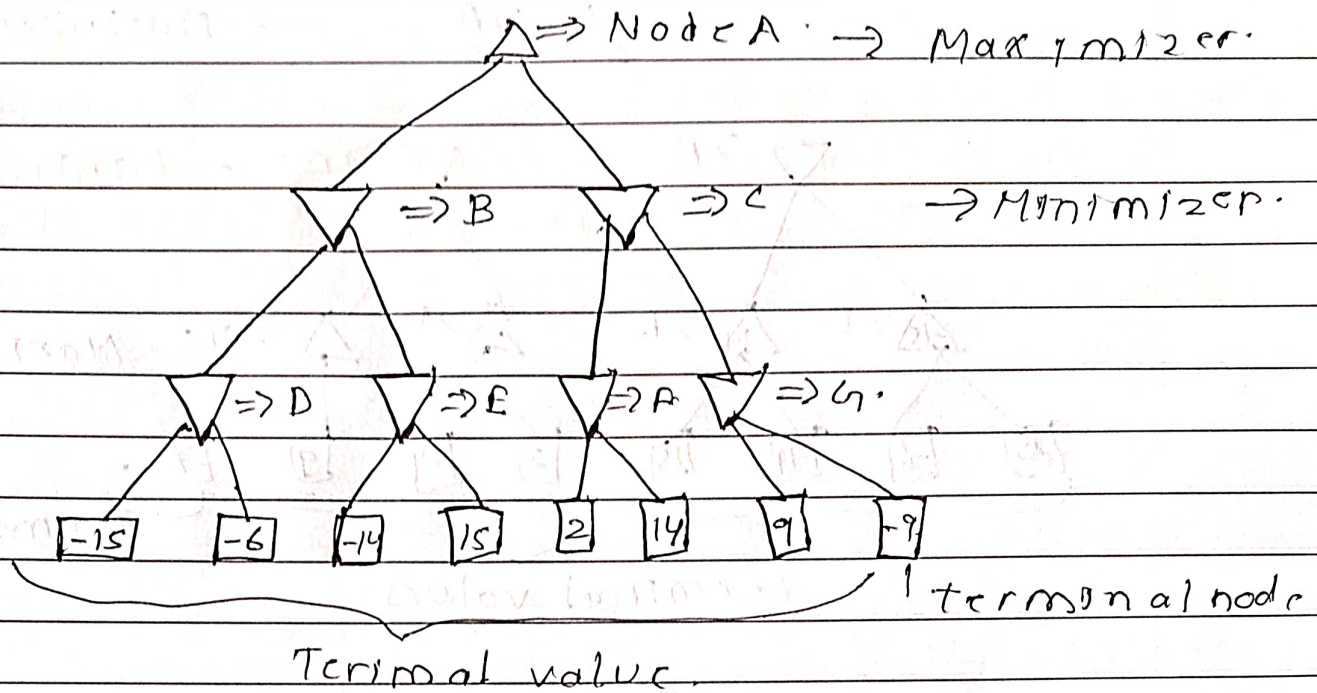 => Node A. -> Maxymizer.
=> B => C -> Minimizer.
=> D => E => A => G.
-15 -6 -14 15 2 14 9 -9
terminal node
Terimal value.